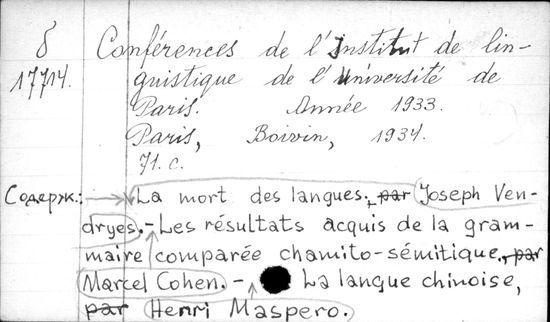 δ
17714.
Conférences de l'Institut de lin-
guistique de l'Université de
Paris. Année 1933.
Paris, Boivin, 1934.
71. c.
Содерж.: La mort des langues., par Joseph Ven-
dryes. - Les résultats acquis de la gram-
maire comparée chamito-sémitique, par
Marcel Cohen. - La langue chinoise,
par Henri Maspero.